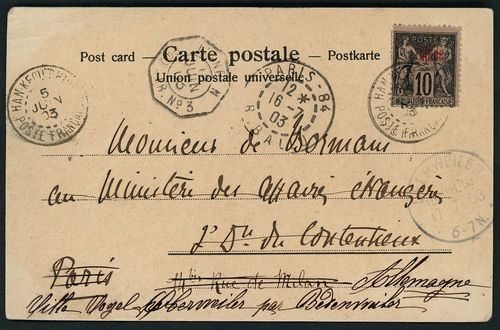 Post card — Carte postale — Postkarte
Union postale universelle
HAN-KEOU CHINE
5
JUIN
03
POSTE FRANCAISE
N
R. No 3
PARIS-84
12
16-7
03
R. BAL
10
HAN-KEOU
POSTE FRANCAISE
6-7N.
Monsieur de Bormans
au Ministère des affaires étrangères
du Contentieux
Paris
Rue de Milan Allemagne
Villa Vogel per Badenweiler